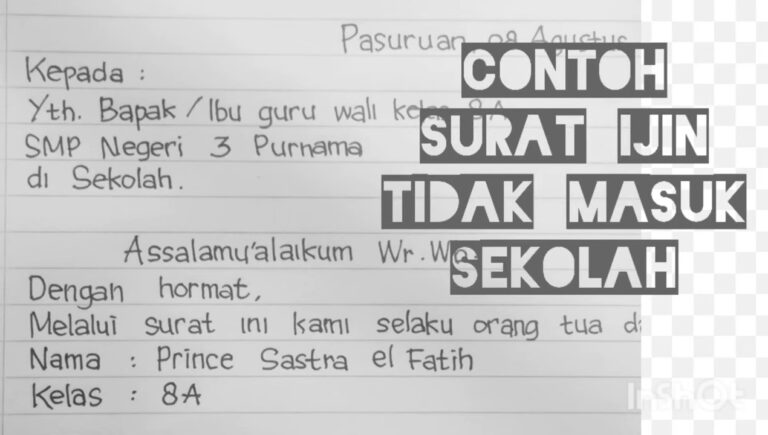 Pasuruan, 08 Agustus
Kepada :
Yth. Bapak / Ibu guru wali kelas 8A
SMP Negeri 3 Purnama
di Sekolah.
Assalamu'alaikum Wr. Wb.
Dengan hormat,
Melalui surat ini kami selaku orang tua
Nama : Prince Sastra el Fatih
Kelas : 8A
CONTOH
SURAT IJIN
TIDAK MASUK
SEKOLAH
InShot